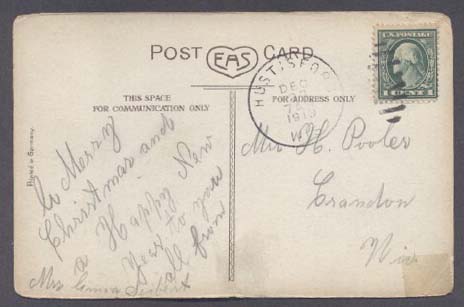 POST EAS CARD
THIS SPACE
FOR COMMUNICATION ONLY
FOR ADDRESS ONLY
HUSTISFORD
DEC
1913
WIS
1 CENT 1
Printed in Germany
A Merry
Christmas and
a Happy New
Year to you
all from
Mrs
Mrs H. Pooler
Crandon
Wis